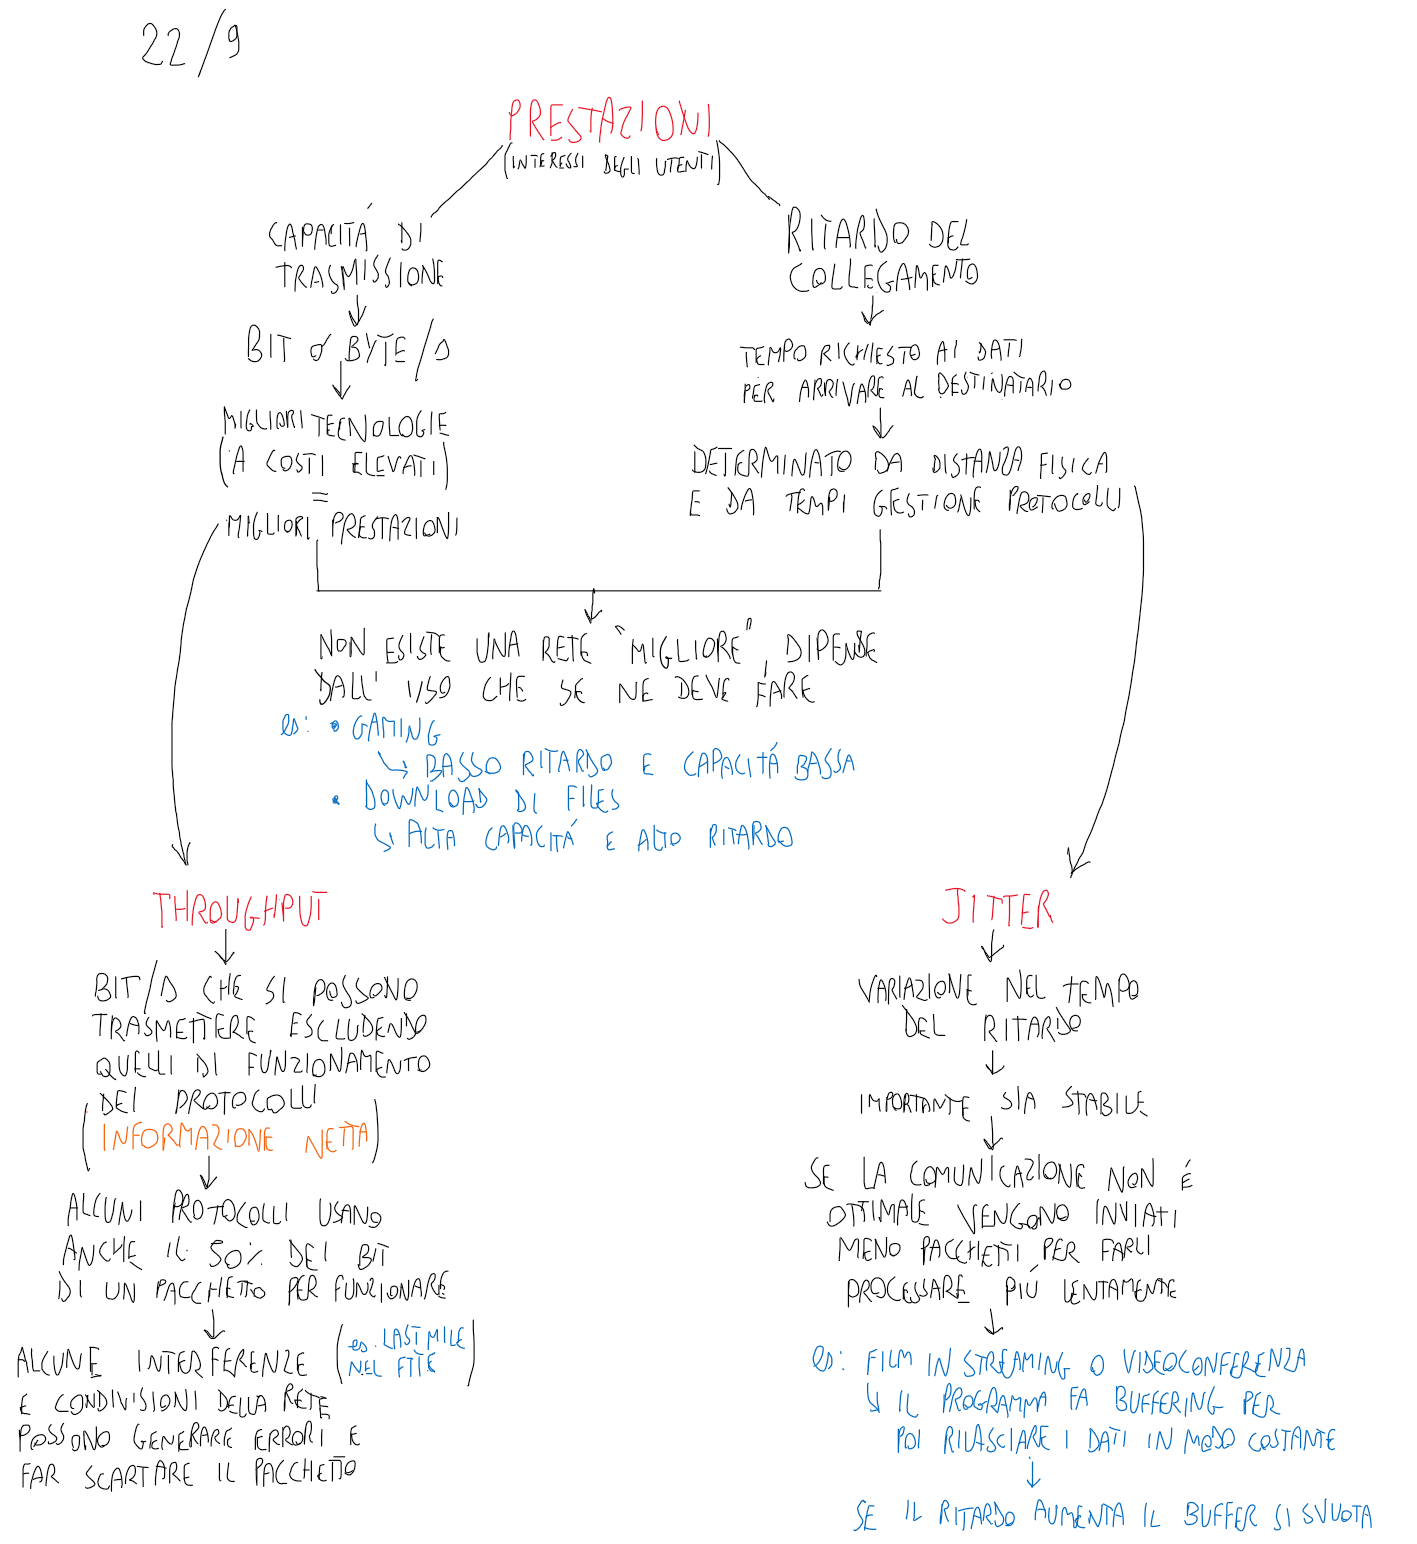 22/9
PRESTAZIONI
(INTERESSI DEGLI UTENTI)
CAPACITÁ DI
TRASMISSIONE
BIT o BYTE/s
MIGLIORI TECNOLOGIE
(A COSTI ELEVATI)
=
MIGLIORI PRESTAZIONI
RITARDO DEL
COLLEGAMENTO
TEMPO RICHIESTO AI DATI
PER ARRIVARE AL DESTINATARIO
DETERMINATO DA DISTANZA FISICA
E DA TEMPI GESTIONE PROTOCOLLI
NON ESISTE UNA RETE "MIGLIORE", DIPENDE
DALL' USO CHE SE NE DEVE FARE
es: • GAMING
↳ BASSO RITARDO E CAPACITÁ BASSA
• DOWNLOAD DI FILES
↳ ALTA CAPACITÁ E ALTO RITARDO
THROUGHPUT
BIT/s CHE SI POSSONO
TRASMETTERE ESCLUDENDO
QUELLI DI FUNZIONAMENTO
DEI PROTOCOLLI
(INFORMAZIONE NETTA)
ALCUNI PROTOCOLLI USANO
ANCHE IL 50% DEI BIT
DI UN PACCHETTO PER FUNZIONARE
ALCUNE INTERFERENZE (es. LAST MILE
NEL FTTE)
E CONDIVISIONI DELLA RETE
POSSONO GENERARE ERRORI E
FAR SCARTARE IL PACCHETTO
JITTER
VARIAZIONE NEL TEMPO
DEL RITARDO
IMPORTANTE SIA STABILE
SE LA COMUNICAZIONE NON É
OTTIMALE VENGONO INVIATI
MENO PACCHETTI PER FARLI
PROCESSARE PIÚ LENTAMENTE
es: FILM IN STREAMING O VIDEOCONFERENZA
↳ IL PROGRAMMA FA BUFFERING PER
POI RILASCIARE I DATI IN MODO COSTANTE
SE IL RITARDO AUMENTA IL BUFFER SI SVUOTA